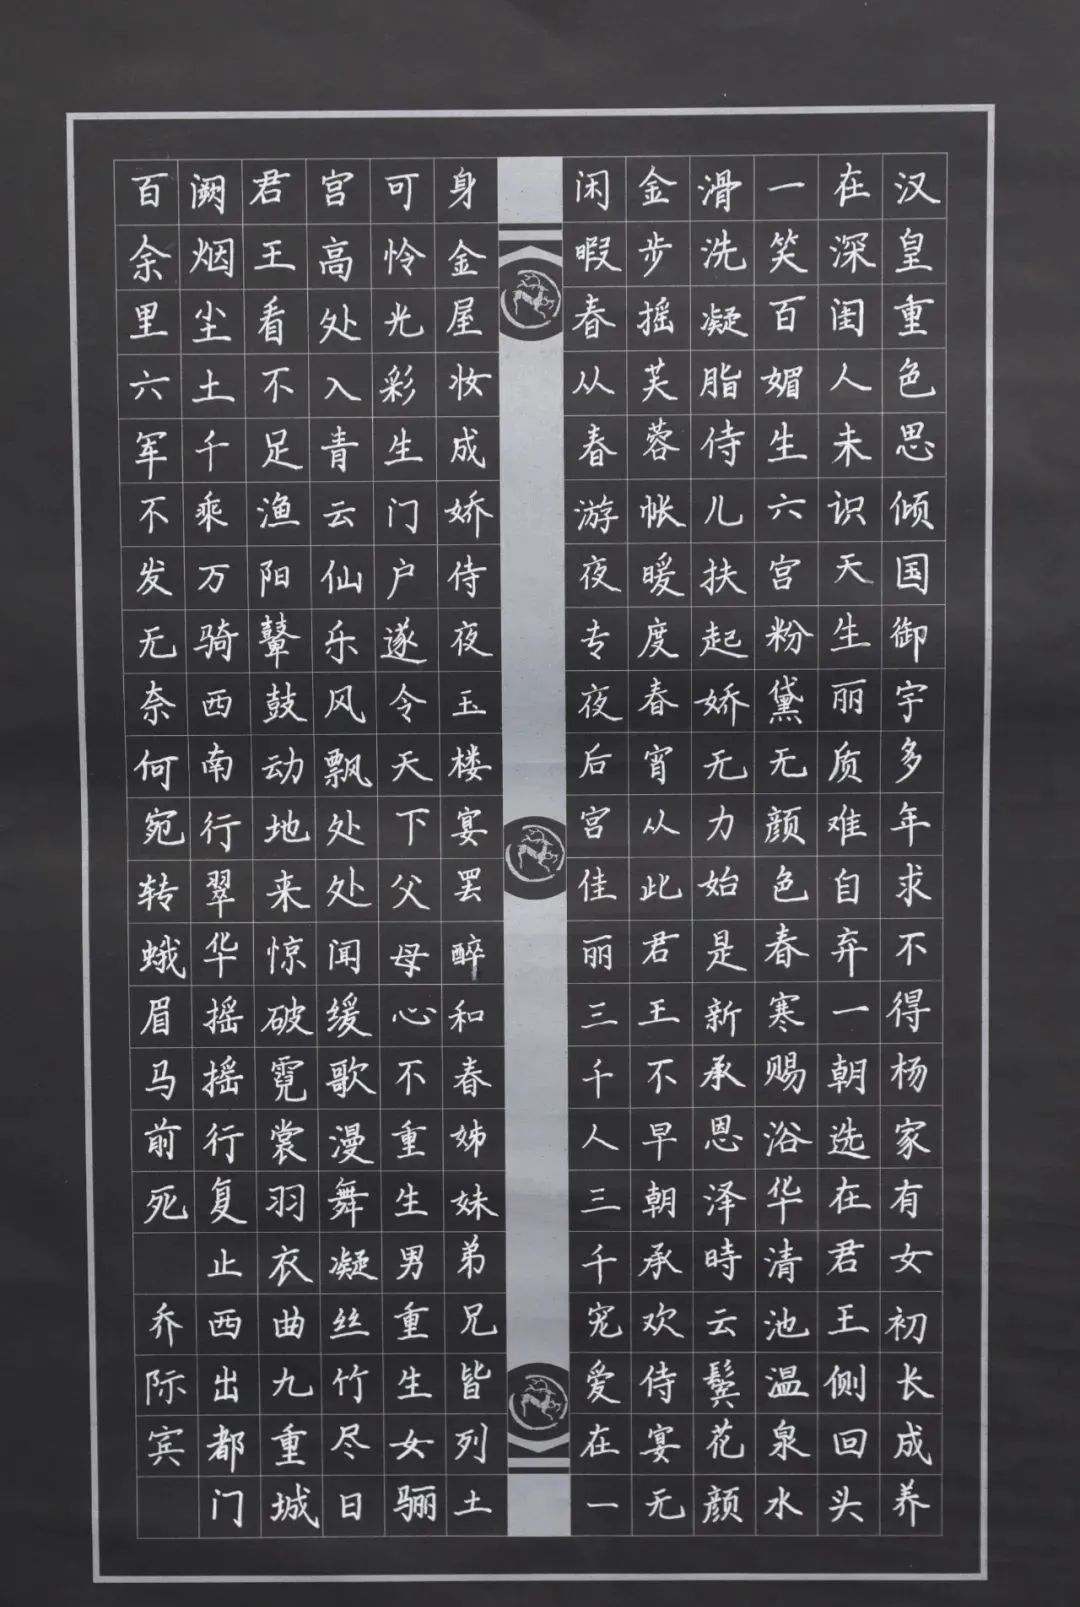 汉皇重色思倾国御宇多年求不得杨家有女初长成养
在深闺人未识天生丽质难自弃一朝选在君王侧回头
一笑百媚生六宫粉黛无颜色春寒赐浴华清池温泉水
滑洗凝脂侍儿扶起娇无力始是新承恩泽時云鬓花颜
金步摇芙蓉帐暖度春宵从此君王不早朝承欢侍宴无
闲暇春从春游夜专夜后宫佳丽三千人三千宠爱在一
身金屋妆成娇侍夜玉楼宴罢醉和春姊妹弟兄皆列土
可怜光彩生门户遂令天下父母心不重生男重生女骊
宫高处入青云仙乐风飘处处闻缓歌漫舞凝丝竹尽日
君王看不足渔阳鼙鼓动地来惊破霓裳羽衣曲九重城
阙烟尘土千乘万骑西南行翠华摇摇行复止西出都门
百余里六军不发无奈何宛转蛾眉马前死 乔际宾